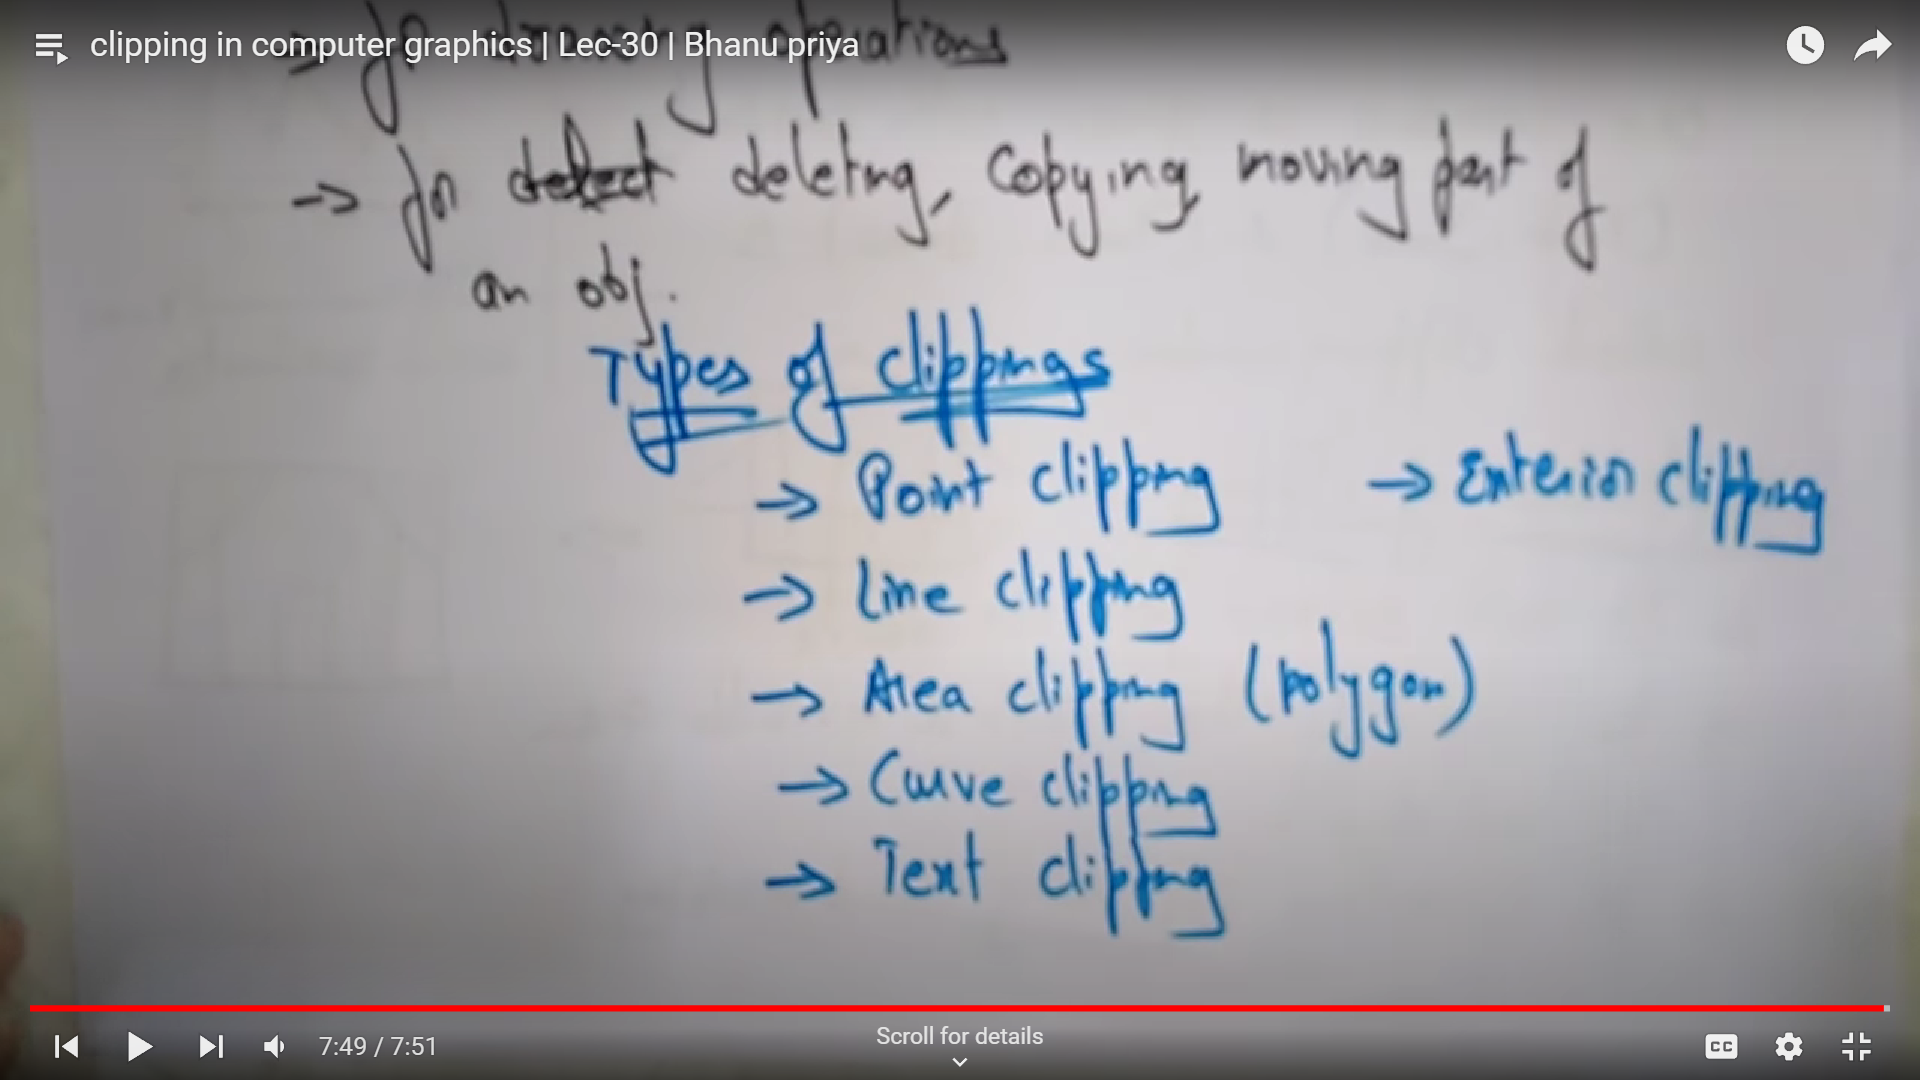 clipping in computer graphics | Lec-30 | Bhanu priya
→ for drawing operations
→ for deleting, Copying, moving part of
an obj.
Types of clippings
→ Point clipping → Exterior clipping
→ Line clipping
→ Area clipping (polygon)
→ Curve clipping
→ Text clipping
7:49 / 7:51
Scroll for details
CC